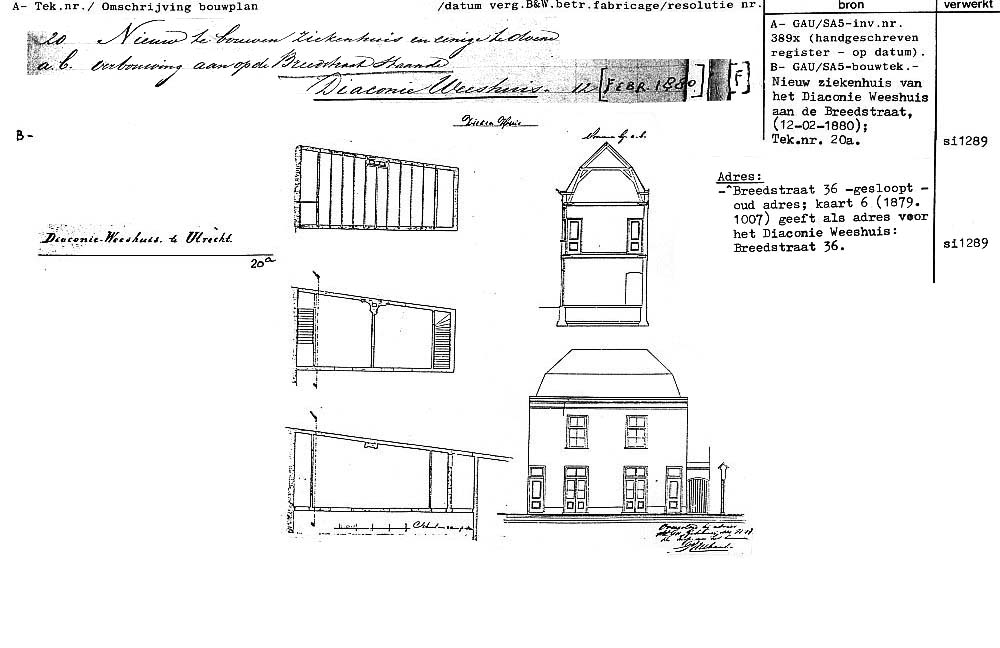 A- Tek.nr./ Omschrijving bouwplan /datum verg.B&W.betr.fabricage/resolutie nr.
bron
verwerkt
20 Nieuw te bouwen Ziekenhuis en eenige te doene
a.b. verbouwing aan op de Breedstraat staande
Diaconie Weeshuis. 12 [FEBR. 1880] [F]
A- GAU/SA5-inv.nr.
389x (handgeschreven
register - op datum).
B- GAU/SA5-bouwtek.-
Nieuw ziekenhuis van
het Diaconie Weeshuis
aan de Breedstraat,
(12-02-1880);
Tek.nr. 20a.
si1289
Adres:
-^Breedstraat 36 -gesloopt -
oud adres; kaart 6 (1879.
1007) geeft als adres voor
het Diaconie Weeshuis:
Breedstraat 36.
si1289
B-
Ziekenhuis
Diaconie-Weeshuis te Utrecht.
20a